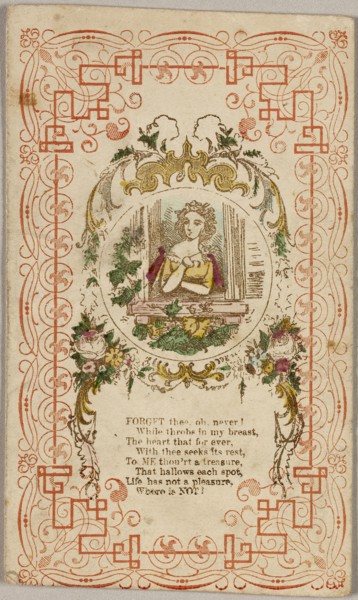 FORGET thee, oh, never!
While throbs in my breast,
The heart that for ever,
With thee seeks its rest,
To ME thou'rt a treasure,
That hallows each spot,
Life has not a pleasure,
Where is NOT!